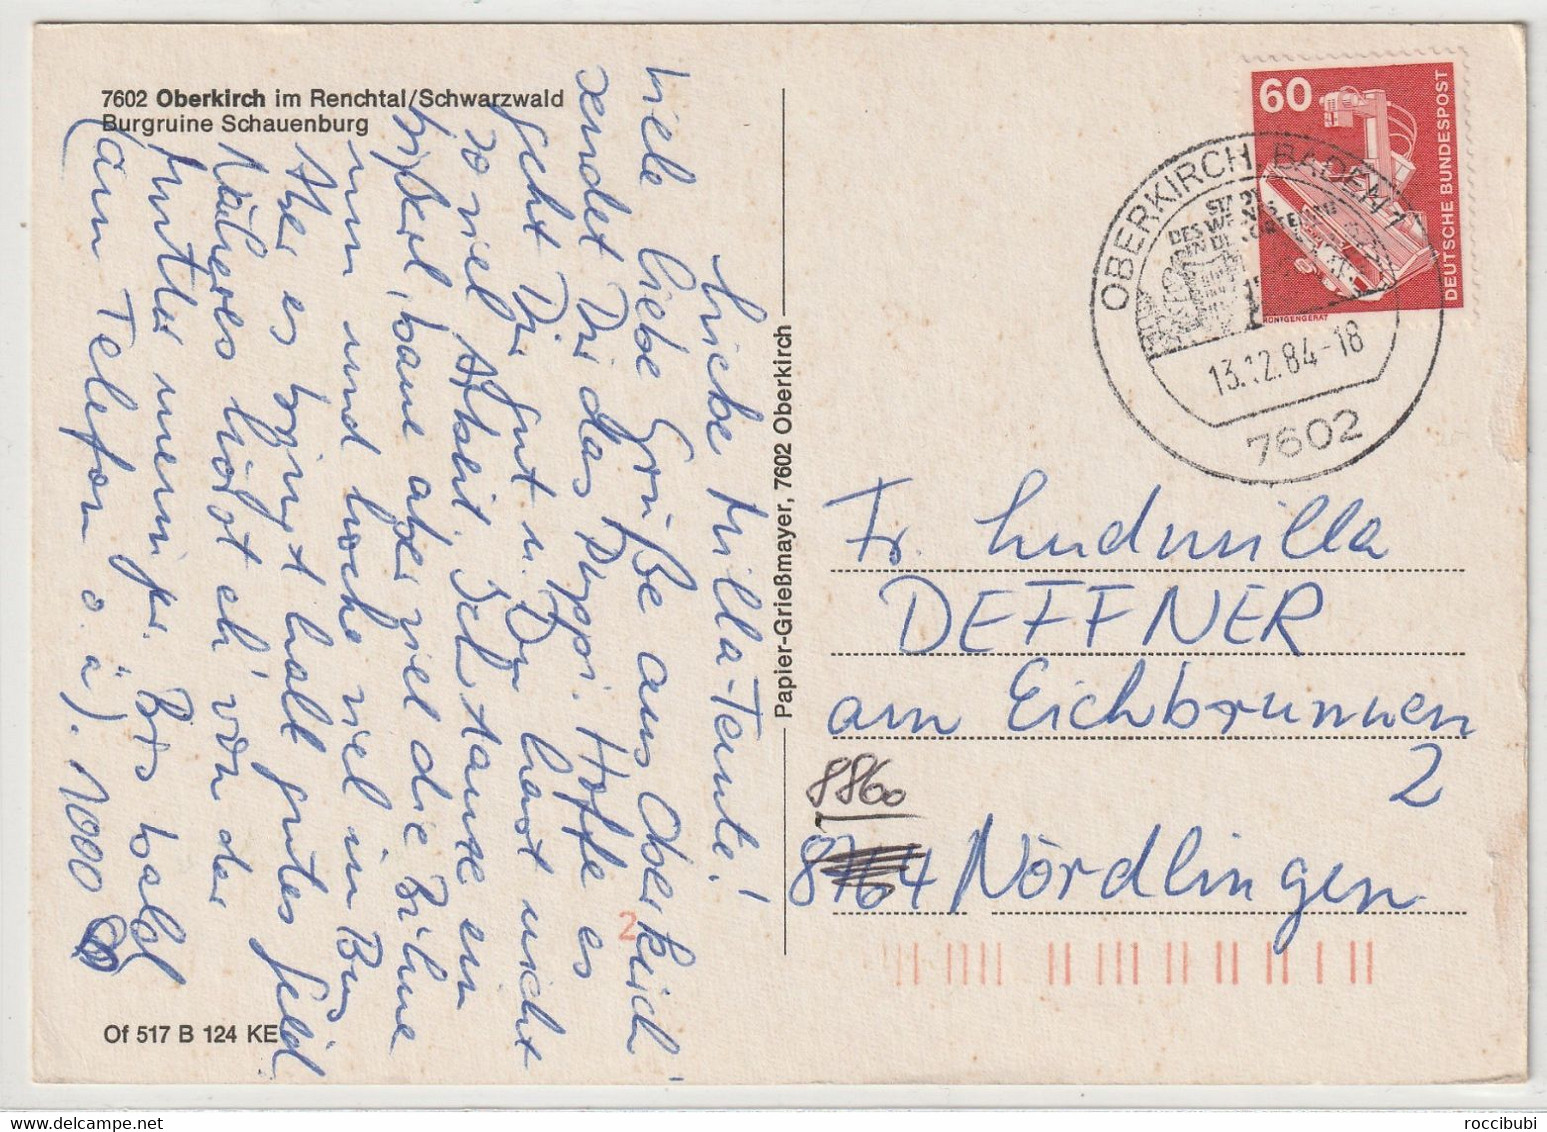 7602 Oberkirch im Renchtal/Schwarzwald
Burgruine Schauenburg
Liebe Milla-Tante!
Viele liebe Grüße aus Oberkirch
sendet Dir das Puppi. Hoffe es
geht Dir gut u. Du hast nicht
so viel Arbeit. Ich tanze ein
bißerl, baue aber viel die Bühne
um und koche viel im Bus
Aber es bringt halt gutes Geld
Näheres hört eh' von der
Mutter meiniger. Bis bald
(am Telefon o. ä). 1000
Of 517 B 124 KE
Papier-Grießmayer, 7602 Oberkirch
60
DEUTSCHE BUNDESPOST
RÖNTGENGERÄT
OBERKIRCH, BADEN 1
DES WEINES
13.12.84-18
7602
Fr. Ludmilla
DEFFNER
am Eichbrunnen
2
8860
Nördlingen
2
roccibubi